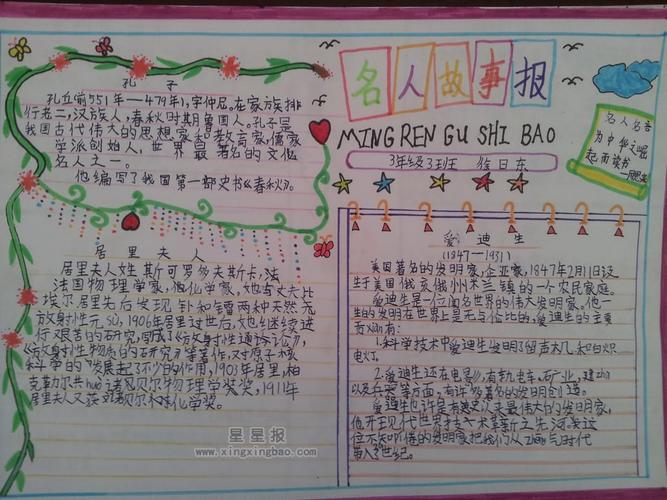 孔子
孔丘前551年—479年),字仲尼。在家族排
行老二,汉族人,春秋时期鲁国人。孔子是
我国古代伟大的思想家和教育家,儒家
学派创始人,世界最著名的文化
名人之一。
他编写了我国第一部史书《春秋》。
居里夫人
居里夫人姓斯可罗多夫斯卡,法
法国物理学家,他化学家,她与丈夫比
埃尔居里先后发现钋和镭两种天然
放射性元sù,1906年居里过世后,她继续进
行艰苦的研究,写成了《放射性通论》,
《放射性物质的研究》等著作,对原子核
科学的发展起了不小的作用,1903年居里,柏
克莱力尔共huò诺贝尔物理学奖奖,1911年
居里夫人又获诺贝尔化学奖。
名人故事报
MING REN GU SHI BAO
3年级3班 徐日东
名人名言
为中华之崛
起而读书
—周恩来
爱迪生
(1847—1931)
美国著名的发明家,企业家,1847年2月11日诞
生于美国俄亥俄州米兰镇的一个农民家庭。
爱迪生是一位闻名世界的伟大发明家。他一
生的发明在世界上是无与伦比的,爱迪生的主要
贡xiàn有:
1.科学技术中爱迪生发明了留声机和白炽
电灯。
2.爱迪生还在电影,有轨电车,矿业,建zhù
以及兵器等方面,有许多著名的发明创造。
爱迪生也许是有史以来最伟大的发明家,
他开现代世界技术革新之先河
位不知疲倦的发明家把我们从zhēng气时代
带入世纪。
星星报
www.xingxingbao.com